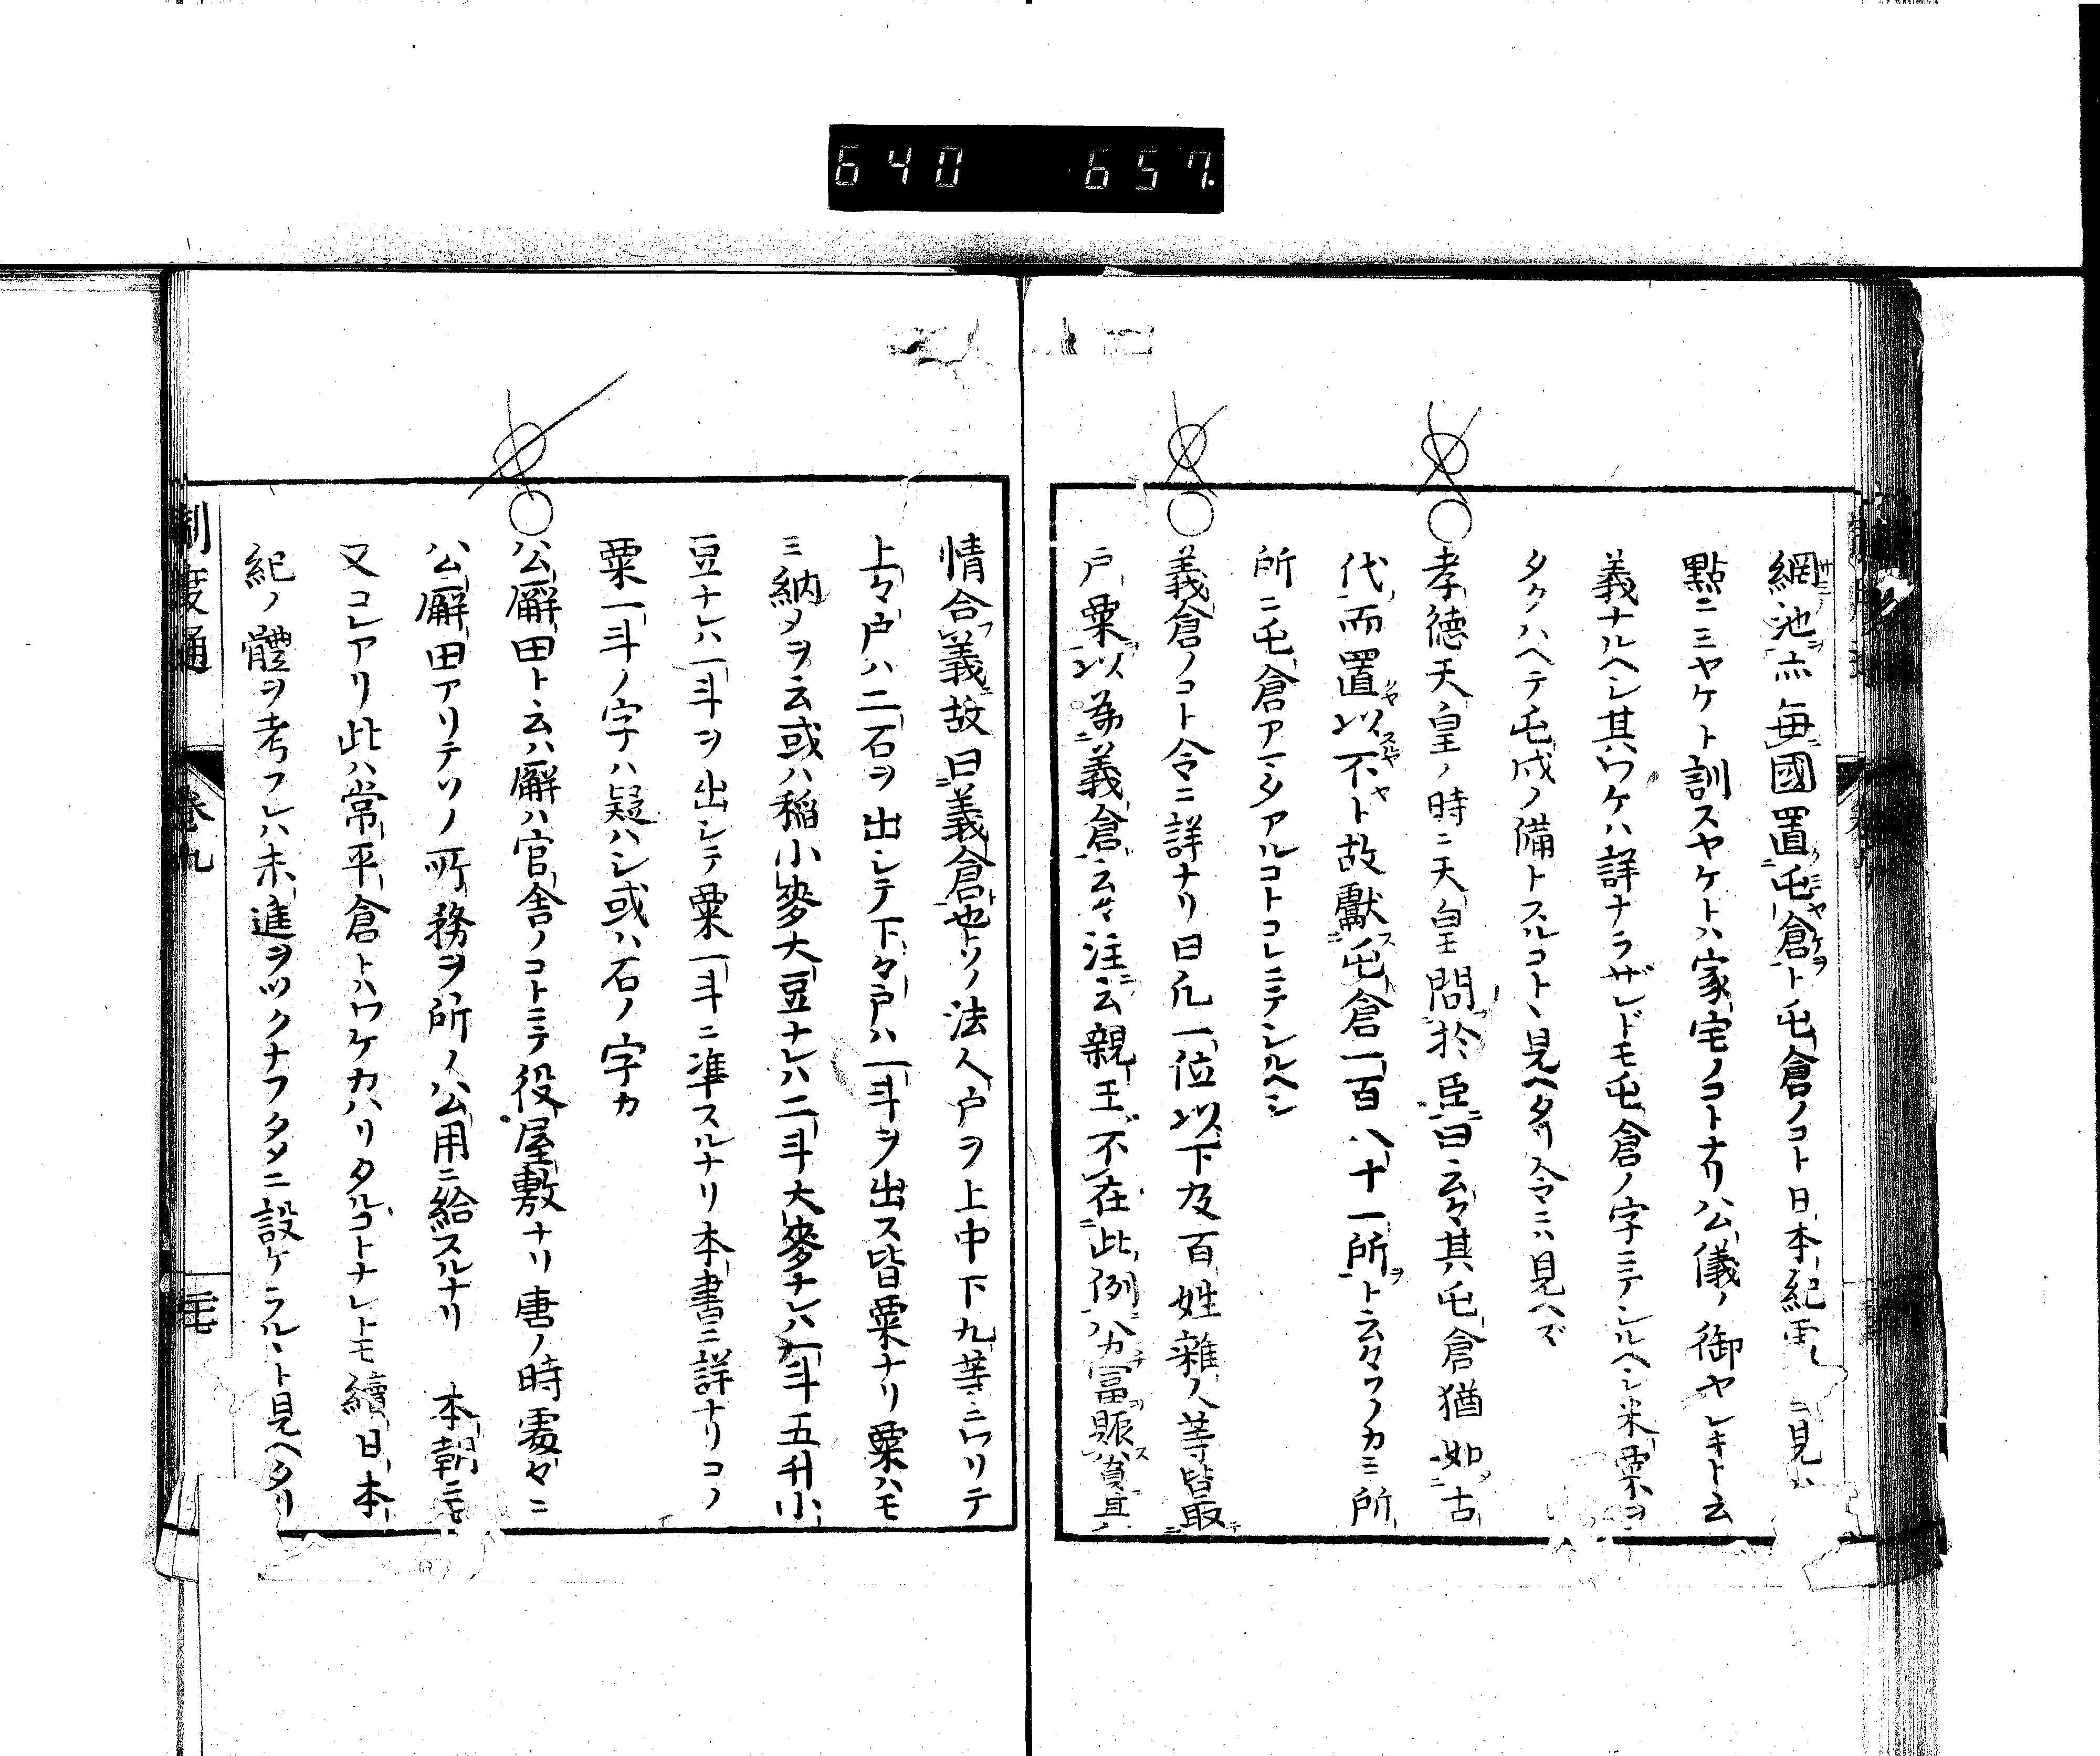 640 657.
網池亦毎國置屯倉ト屯倉ノコト日本紀ニ見ハ
點ニミヤケト訓スヤケトハ家宅ノコトナリ公儀ノ御ヤシキト云
義ナルヘシ其ワケハ詳ナラザレドモ屯倉ノ字ニテシルヘシ米粟ヲ
タクハヘテ屯戍ノ備トスルコトヽ見ヘタリ令ニハ見ヘズ
○孝徳天皇ノ時ニ天皇問於臣曰云々其屯倉猶如古
代而置以不ト故獻屯倉一百八十一所ト云々ワツカミ所
所ニ屯倉アマタアルコトコレニテシルヘシ
○義倉ノコト令ニ詳ナリ曰凡一位以下及百姓雜人等皆取
戸粟以為義倉云々注云親王不在此例八分富賑貧其
情合義故曰義倉也トソノ法人戸ヲ上中下九等ニワリテ
上々戸ハ二石ヲ出シテ下々戸ハ一斗ヲ出ス皆粟ナリ粟ハモ
ミ納メヲ云或ハ稲小麥大豆ナレハ二斗大麥ナレハ一斗五升小
豆ナレハ一斗ヲ出シテ粟一斗ニ準スルナリ本書ニ詳ナリコノ
粟一斗ノ字ハ疑ハシ或ハ石ノ字カ
○公廨田ト云ハ廨ハ官舎ノコトニテ役屋敷ナリ唐ノ時處々ニ
公廨田アリテソノ所務ヲ所ノ公用ニ給スルナリ 本朝ニモ
又コレアリ此ハ常平倉トハワケカハリタルコトナレトモ續日本
紀ノ體ヲ考フレハ未進ヲツクナフタメニ設ケラルヽト見ヘタリ
制度通 卷九 二七